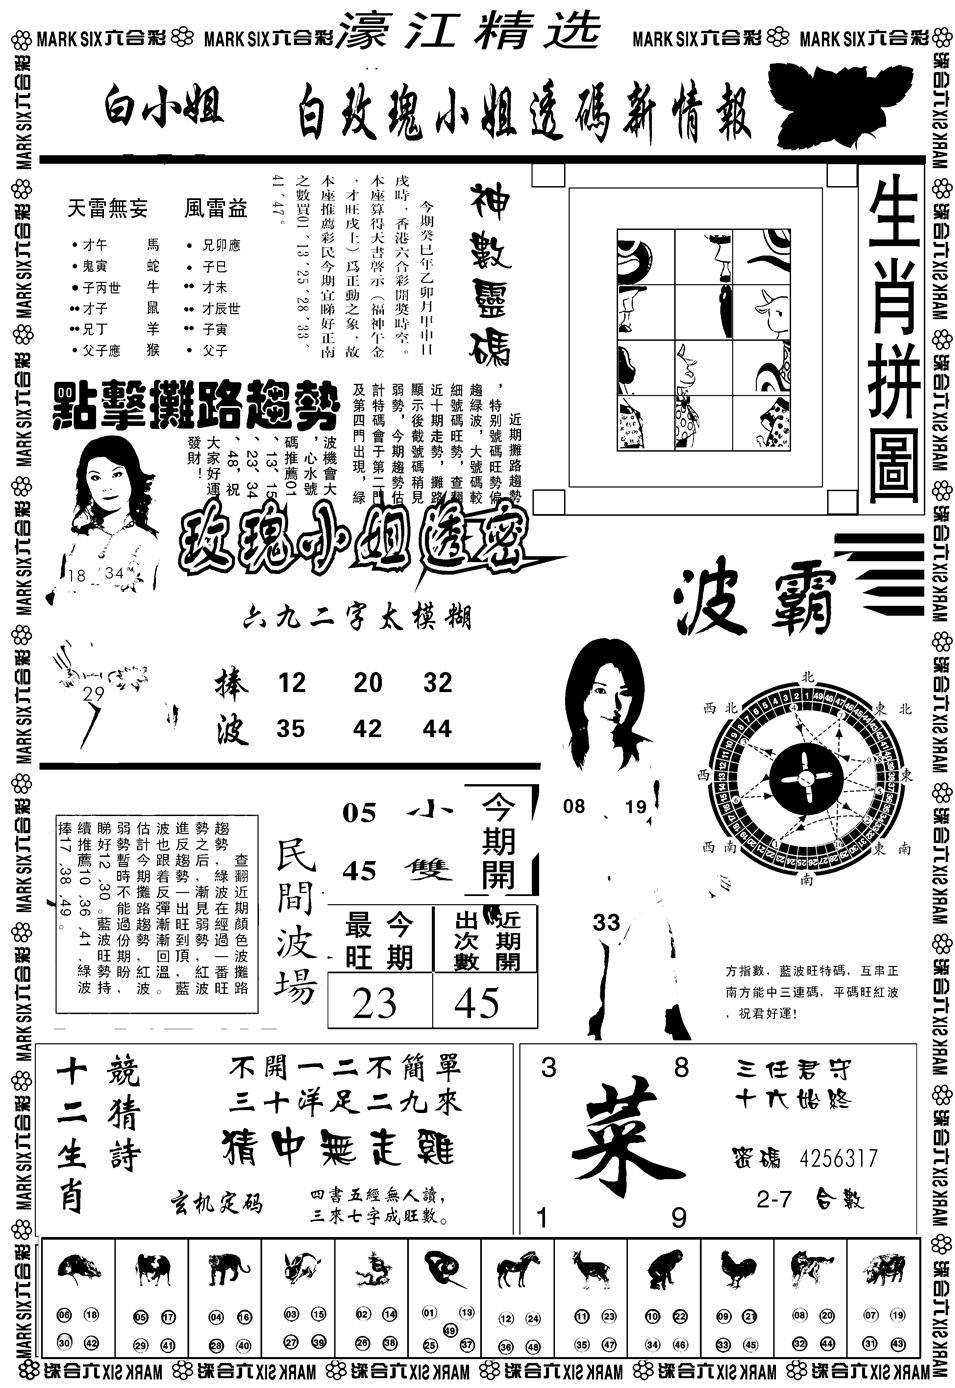 MARK SIX六合彩 MARK SIX六合彩 濠江精选 MARK SIX六合彩 MARK SIX六合彩
白小姐 白玫瑰小姐透碼新情報
天雷無妄 風雷益
才午 馬 兄卯應
鬼寅 蛇 子巳
子丙世 牛 才未
才子 鼠 才辰世
兄丁 羊 子寅
父子應 猴 父子
神數靈碼
今期癸巳年乙卯月甲申日
戌時，香港六合彩開獎時空。
本座算得天書啓示（福神午金
，才旺戌土）爲正動之象，故
本座推薦彩民今期宜睇好正南
之數買01、13、25、28、33、
41、47。
生肖拼圖
點擊攤路趨勢
近期攤路趨勢
，特别號碼旺勢偏
趨綠波，大號碼較
細號碼旺勢，查翻
近十期走勢，攤路
顯示後截號碼稍見
弱勢，今期趨勢估
計特碼會于第二門
及第四門出現，綠
波機會大
，心水號
碼推薦01
、13、15
、23、34
、48，祝
大家好運
發財！
18 34
玫瑰小姐透密
六九二字太模糊
29
捧波
12 20 32
35 42 44
波霸
08 19
33
北
西北 東北
西 東
西南 東南
南
方指數，藍波旺特碼，互串正
南方能中三連碼，平碼旺紅波
，祝君好運！
查翻近期顔色波攤路
趨勢，綠波在經過一番旺
勢之后，漸見弱勢，紅波
進反趨勢一出旺到頂，藍
波也跟着反彈漸漸回溫。
估計今期攤路趨勢紅波
弱勢暫時不能過份期盼，
睇好12、30。藍波旺勢持
續推薦10、36、41、綠波
捧17、38、49。
民間波場
05 小
45 雙
今期開
最旺 今期
近期開出次數
23 45
十二生肖
競猜詩
不開一二不簡單
三十洋足二九來
猜中無走雞
玄机定码
四書五經無人讀，
三來七字成旺數。
3 8
菜
1 9
三任君守
十六始終
密碼 4256317
2-7 合數
06 18 05 17 04 16 03 15 02 14 01 13 12 24 11 23 10 22 09 21 08 20 07 19
49
30 42 29 41 28 40 27 39 26 38 25 37 36 48 35 47 34 46 33 45 32 44 31 43
MARK SIX六合彩 MARK SIX六合彩 MARK SIX六合彩 MARK SIX六合彩 MARK SIX六合彩 MARK SIX六合彩